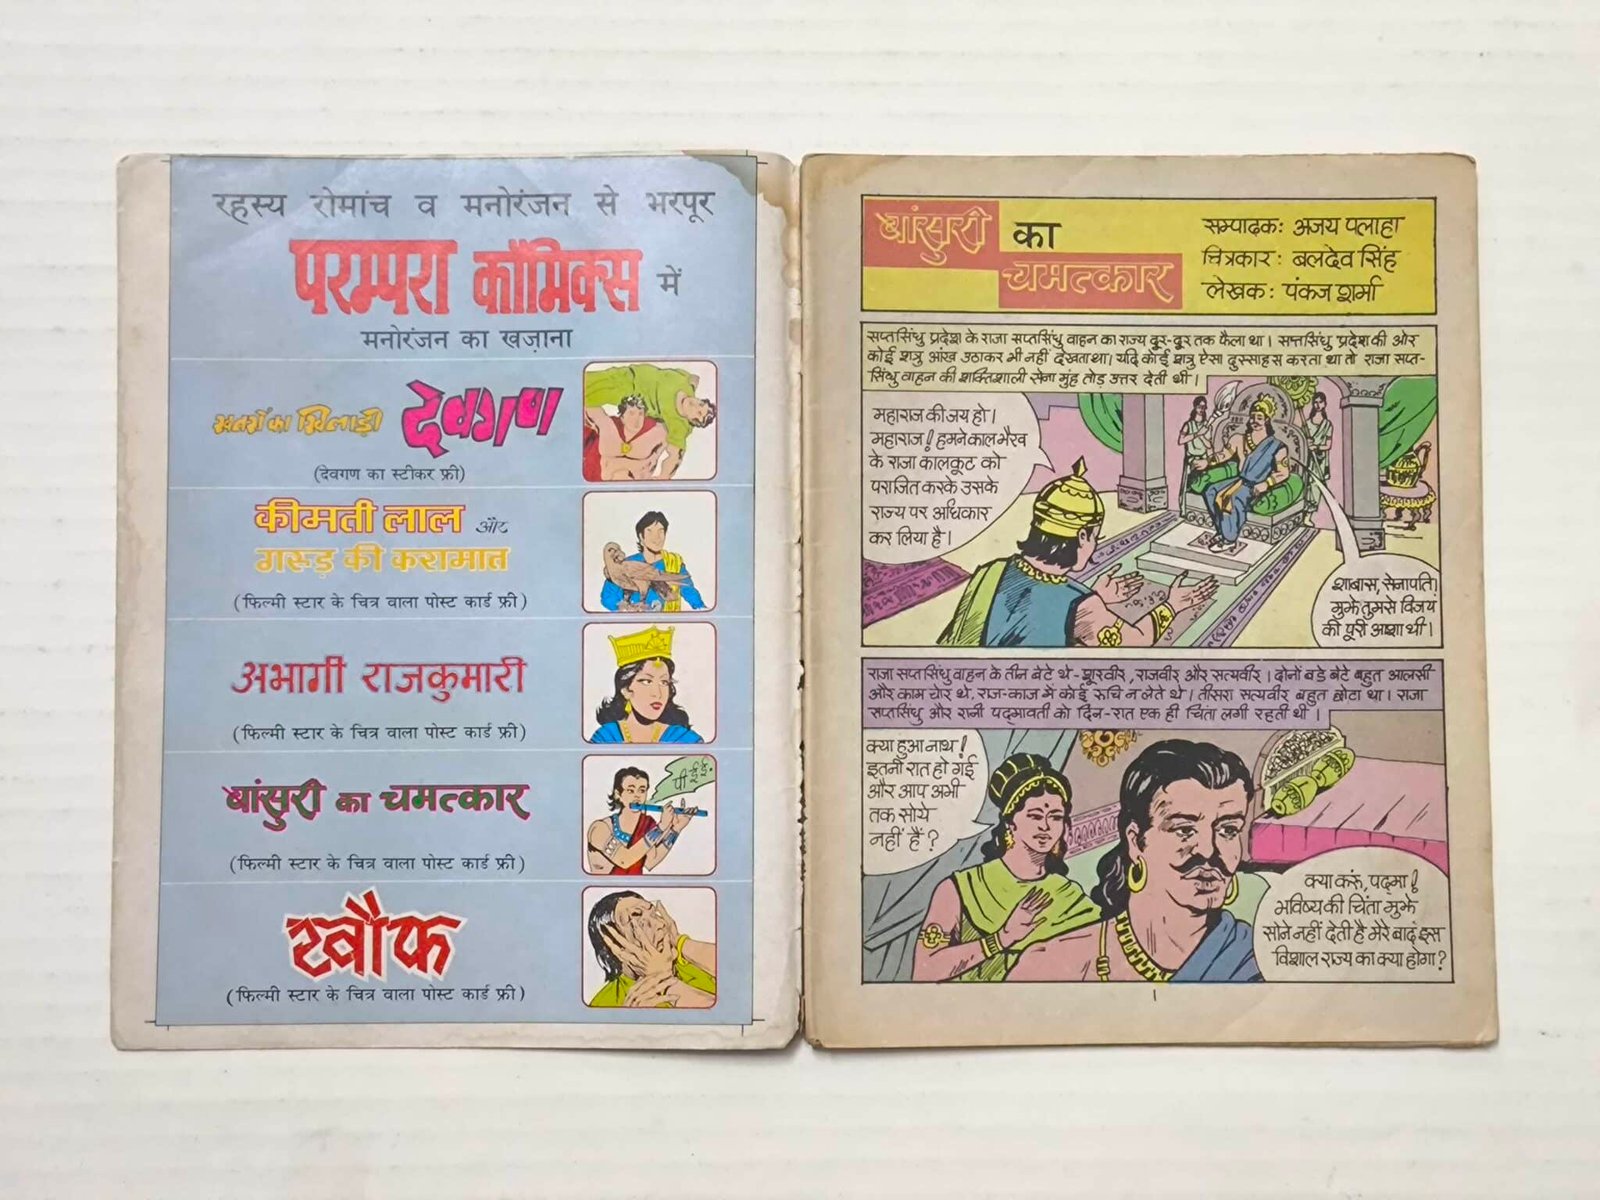 रहस्य रोमांच व मनोरंजन से भरपूर
परम्परा कॉमिक्स में
मनोरंजन का खज़ाना
खतरों का खिलाड़ी देवगण
(देवगण का स्टीकर फ्री)
कीमती लाल और
गरुड़ की करामात
(फिल्मी स्टार के चित्र वाला पोस्ट कार्ड फ्री)
अभागी राजकुमारी
(फिल्मी स्टार के चित्र वाला पोस्ट कार्ड फ्री)
बांसुरी का चमत्कार
पीईई.
(फिल्मी स्टार के चित्र वाला पोस्ट कार्ड फ्री)
खौफ
(फिल्मी स्टार के चित्र वाला पोस्ट कार्ड फ्री)
बांसुरी का
चमत्कार
सम्पादक: अजय पलाहा
चित्रकार: बलदेव सिंह
लेखक: पंकज शर्मा
सप्तसिंधु प्रदेश के राजा सप्तसिंधु वाहन का राज्य दूर-दूर तक फैला था। सप्तसिंधु प्रदेश की ओर
कोई शत्रु आंख उठाकर भी नहीं देखता था। यदि कोई शत्रु ऐसा दुस्साहस करता था तो राजा सप्त-
सिंधु वाहन की शक्तिशाली सेना मुंह तोड़ उत्तर देती थी।
महाराज की जय हो।
महाराज! हमने काल भैरव
के राजा कालकूट को
पराजित करके उसके
राज्य पर अधिकार
कर लिया है।
शाबास, सेनापति!
मुझे तुमसे विजय
की पूरी आशा थी।
राजा सप्तसिंधु वाहन के तीन बेटे थे-शूरवीर, राजवीर और सत्यवीर। दोनों बड़े बेटे बहुत आलसी
और काम चोर थे, राज-काज में कोई रुचि न लेते थे। तीसरा सत्यवीर बहुत छोटा था। राजा
सप्तसिंधु और रानी पद्मावती को दिन-रात एक ही चिंता लगी रहती थी।
क्या हुआ नाथ!
इतनी रात हो गई
और आप अभी
तक सोये
नहीं हैं?
क्या करूं, पद्मा!
भविष्य की चिंता मुझे
सोने नहीं देती है मेरे बाद इस
विशाल राज्य का क्या होगा?
1